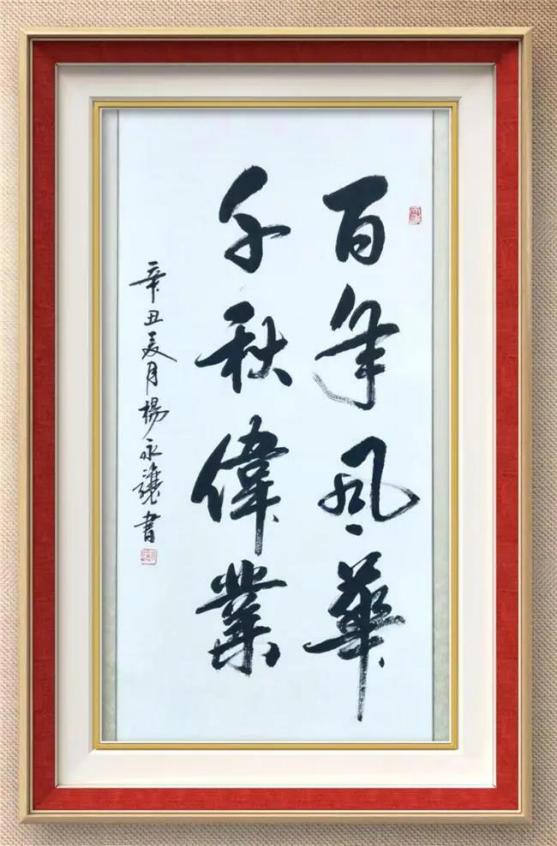 百年風華
千秋偉業
辛丑夏月楊永謙書